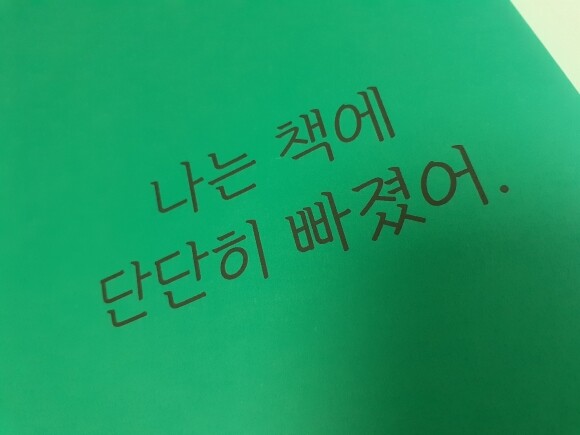 나는 책에
단단히 빠졌어.